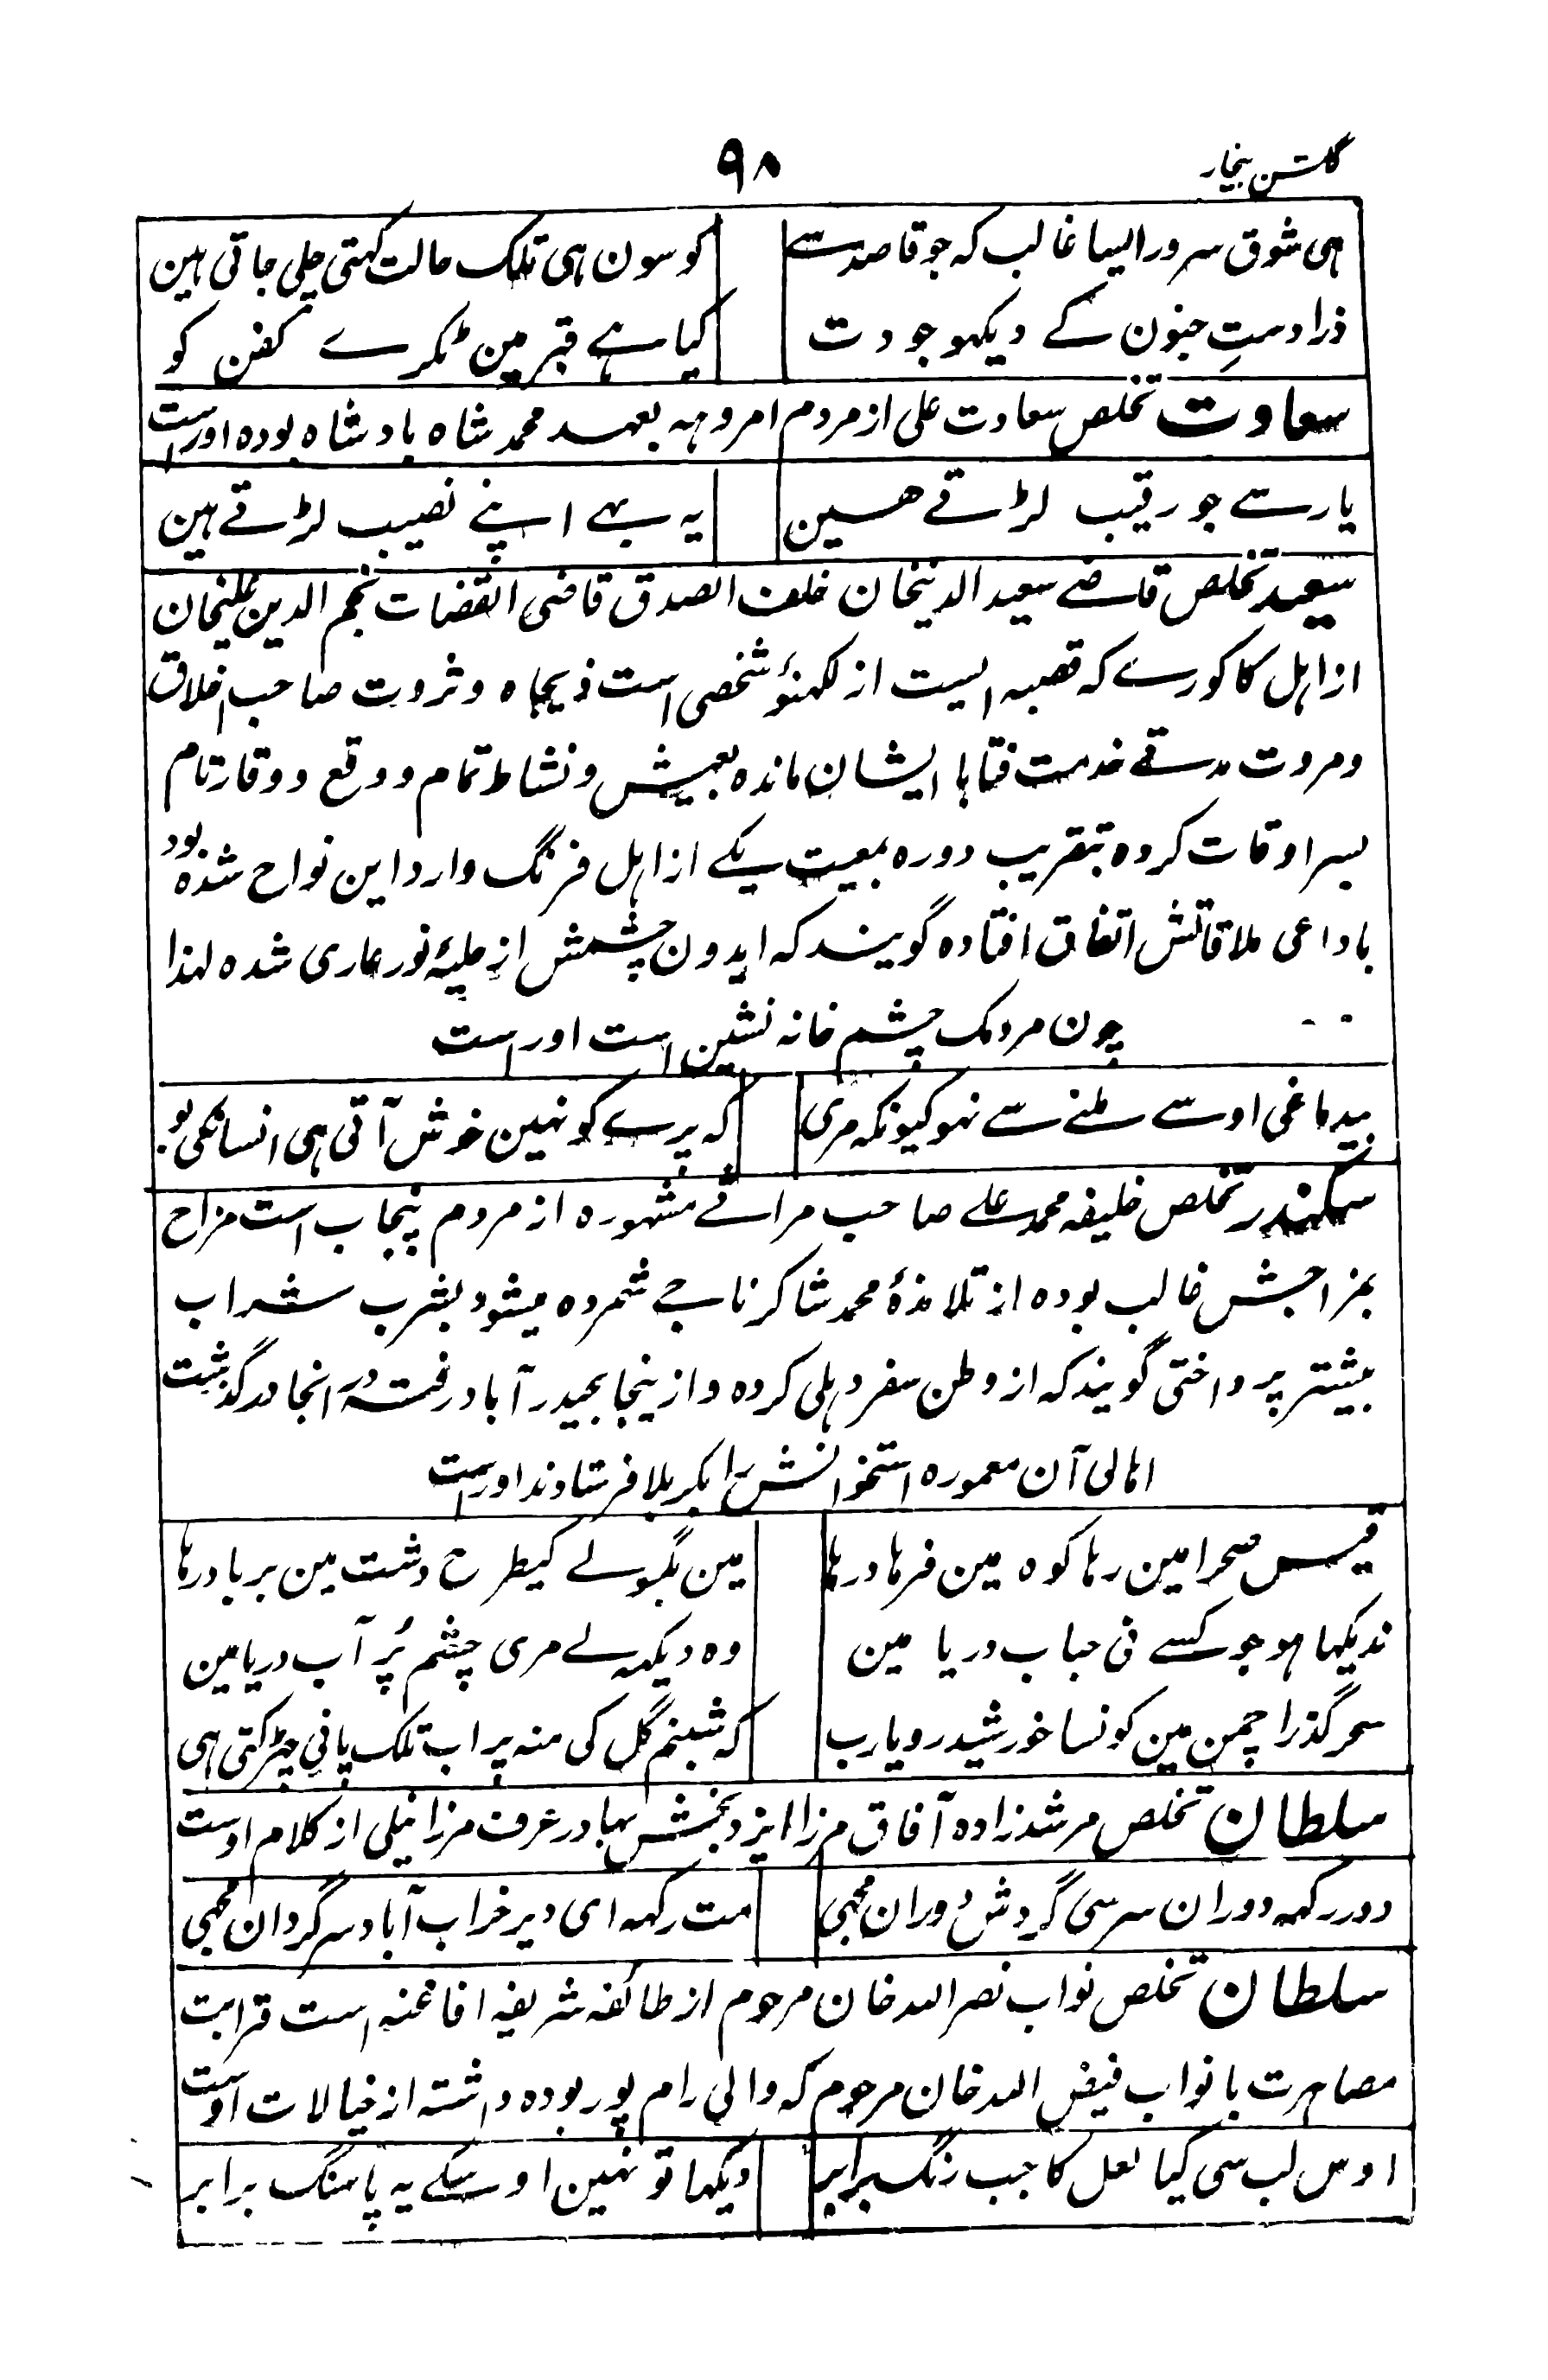 گلشن بیخار
۹۸
ہی شوق سرور ایسا غالب کہ جو قاصد سے
کوسون ہی تلک حالت کہتی چلی جاتی ہین
ذرا دستِ جنون کے دیکھو جودت
کیا ہے قبر مین ٹکرے کفن کو
سعادت تخلص سعادت علی از مردم امروہہ بعہد محمد شاہ بادشاہ بودہ اوراست
یار سے جو رقیب لڑتے ہین
یہ بہے اپنے نصیب لڑتے ہین
سعید تخلص قاضے سعید الدینخان خلف الصدق قاضی القضات نجم الدین علیخان
از اہل کاکورے کہ قصبہ ایست از لکہنؤ شخصی است ذیجاہ و ثروت صاحب اخلاق
و مروت مدتے خدمت افتا با ایشان ماندہ بعیش و نشاط تمام و وقع و وقار تام
بسر اوقات کردہ بتقریب دورہ بمعیت یکے از اہل فرنگ وارد این نواح شدہ بود
با داعی ملاقاتش اتفاق افتادہ گویند کہ ایدون چشمش از حلیۂ نور عاری شدہ لہذا
چون مردمک چشم خانہ نشین است اوراست
بیدماغی اوسے ملنے سے نہو کیونکہ مری
کہ پرے کو نہین خوش آتی ہی انسانکی بو
سکندر تخلص خلیفہ محمد علے صاحب مراثے مشہورہ از مردم پنجاب است مزاح
بمزاجش غالب بودہ از تلامذۂ محمد شاکر ناجے شمردہ میشود بشرب شراب
بیشتر پرداختی گویند کہ از وطن سفر دہلی کردہ و ازینجا بحیدرآباد رفتہ در انجا درگذشت
اہالی آن معمورہ استخوانش را بکربلا فرستادند اوراست
قیس صحرا مین رہا کوہ مین فرہاد رہا
مین بگولے کیطرح دشت مین برباد رہا
ندیکہا ہو جو کسے نی حباب دریا مین
وہ دیکہہ لے مری چشم پُر آب دریا مین
سحر گذرا چمن مین کونسا خورشید رو یارب
کہ شبنم گل کی منہ پر اب تلک پانی چہڑکتی ہی
سلطان تخلص مرشدزادہ آفاق مرزا ایزد بخش بہادر عرف مرزا نیلی از کلام اوست
دور رکہہ دوران سر سی گردش دوران مجہی
مت رکہہ ای دیر خراب آباد سرگردان مجہی
سلطان تخلص نواب نصر اللہ خان مرحوم از طائفہ شریفہ افاغنہ است قرابت
مصاہرت با نواب فیض اللہ خان مرحوم کہ والی رام پور بودہ داشتہ از خیالات اوست
اوس لب سی کیا لعل کا جب رنگ برابر
دیکہا تو نہین اوسکے یہ پاسنگ برابر